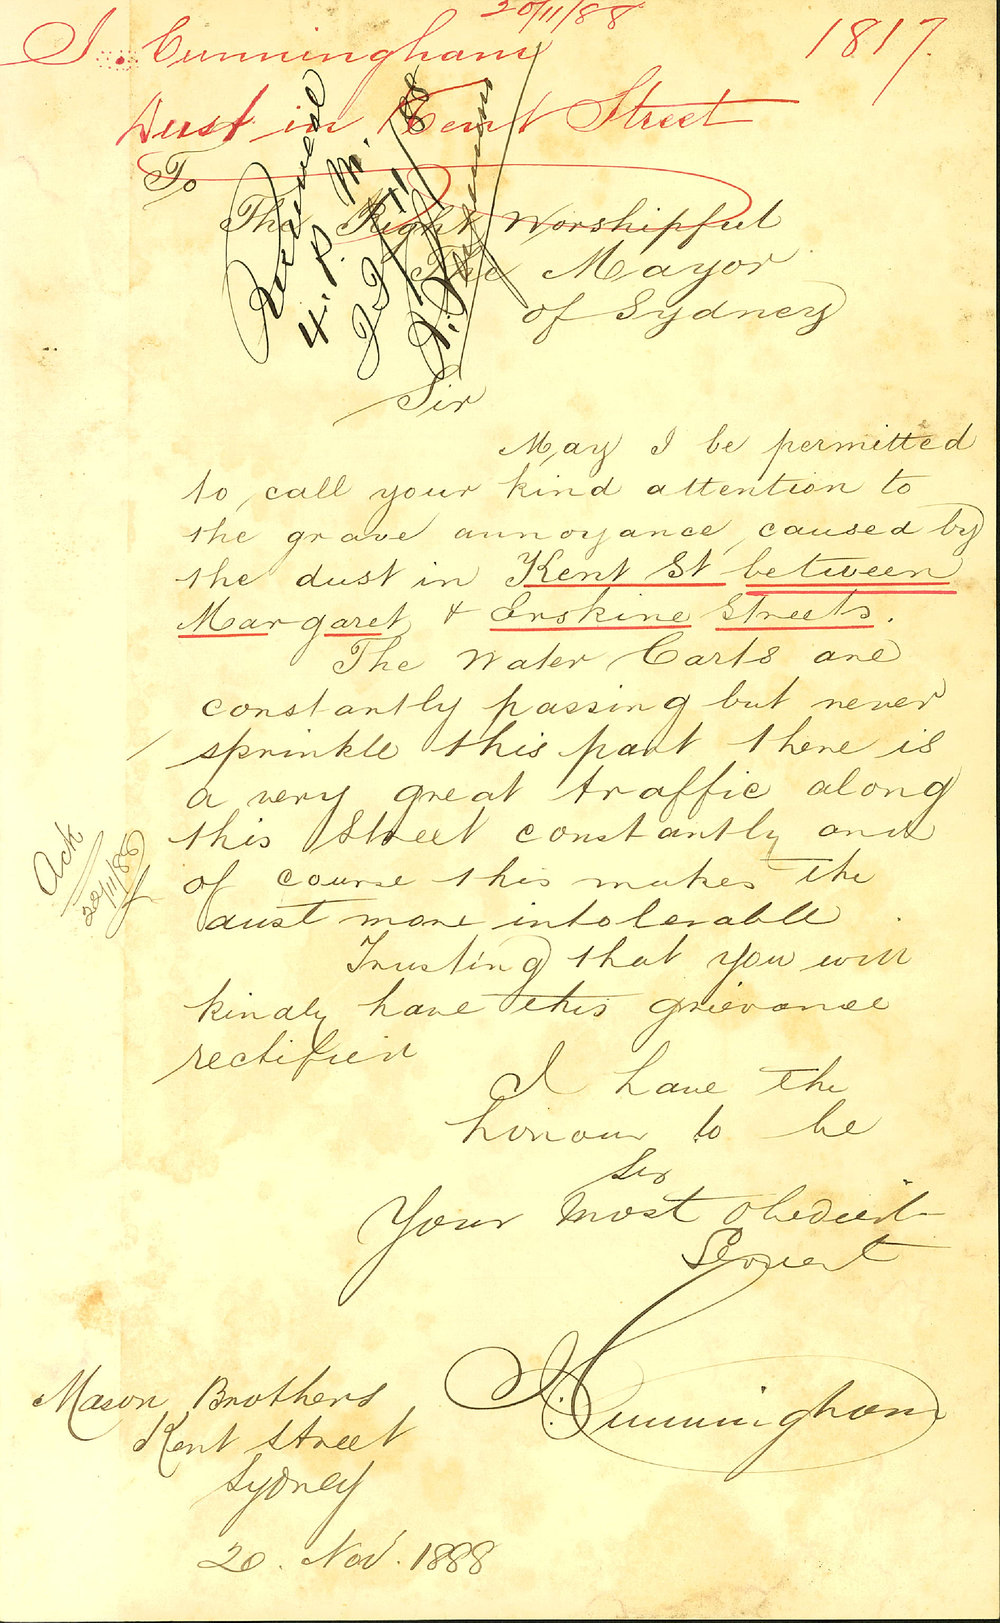 20/11/88
J. Cunningham 1817.
Dust in Kent Street
To
The Right Worshipful
The Mayor
of Sydney
Received
4. P. M.
22/11/88
Sir
May I be permitted
to call your kind attention to
the grave annoyance caused by
the dust in Kent St between
Margaret & Erskine Streets.
The Water Carts are
constantly passing but never
sprinkle this part there is
a very great traffic along
this Street constantly and
of course this makes the
dust more intolerable
Ack
20/11/88
Trusting that you will
kindly have this grievance
rectified
I have the
honour to be
Sir
Your most obedient
Servant
J. Cunningham
Mason Brothers
Kent Street
Sydney
20. Nov. 1888